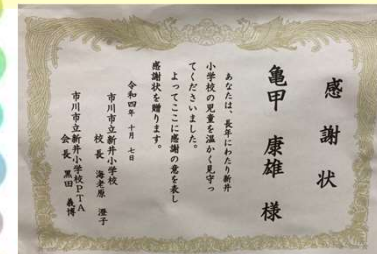 感謝状
亀甲 康雄 様
あなたは、長年にわたり新井
小学校の児童を温かく見守っ
てくださいました。
よってここに感謝の意を表し
感謝状を贈ります。
令和四年 十月 七日
市川市立新井小学校
校長 海老原 澄子
市川市立新井小学校PTA
会長 黒田 義博